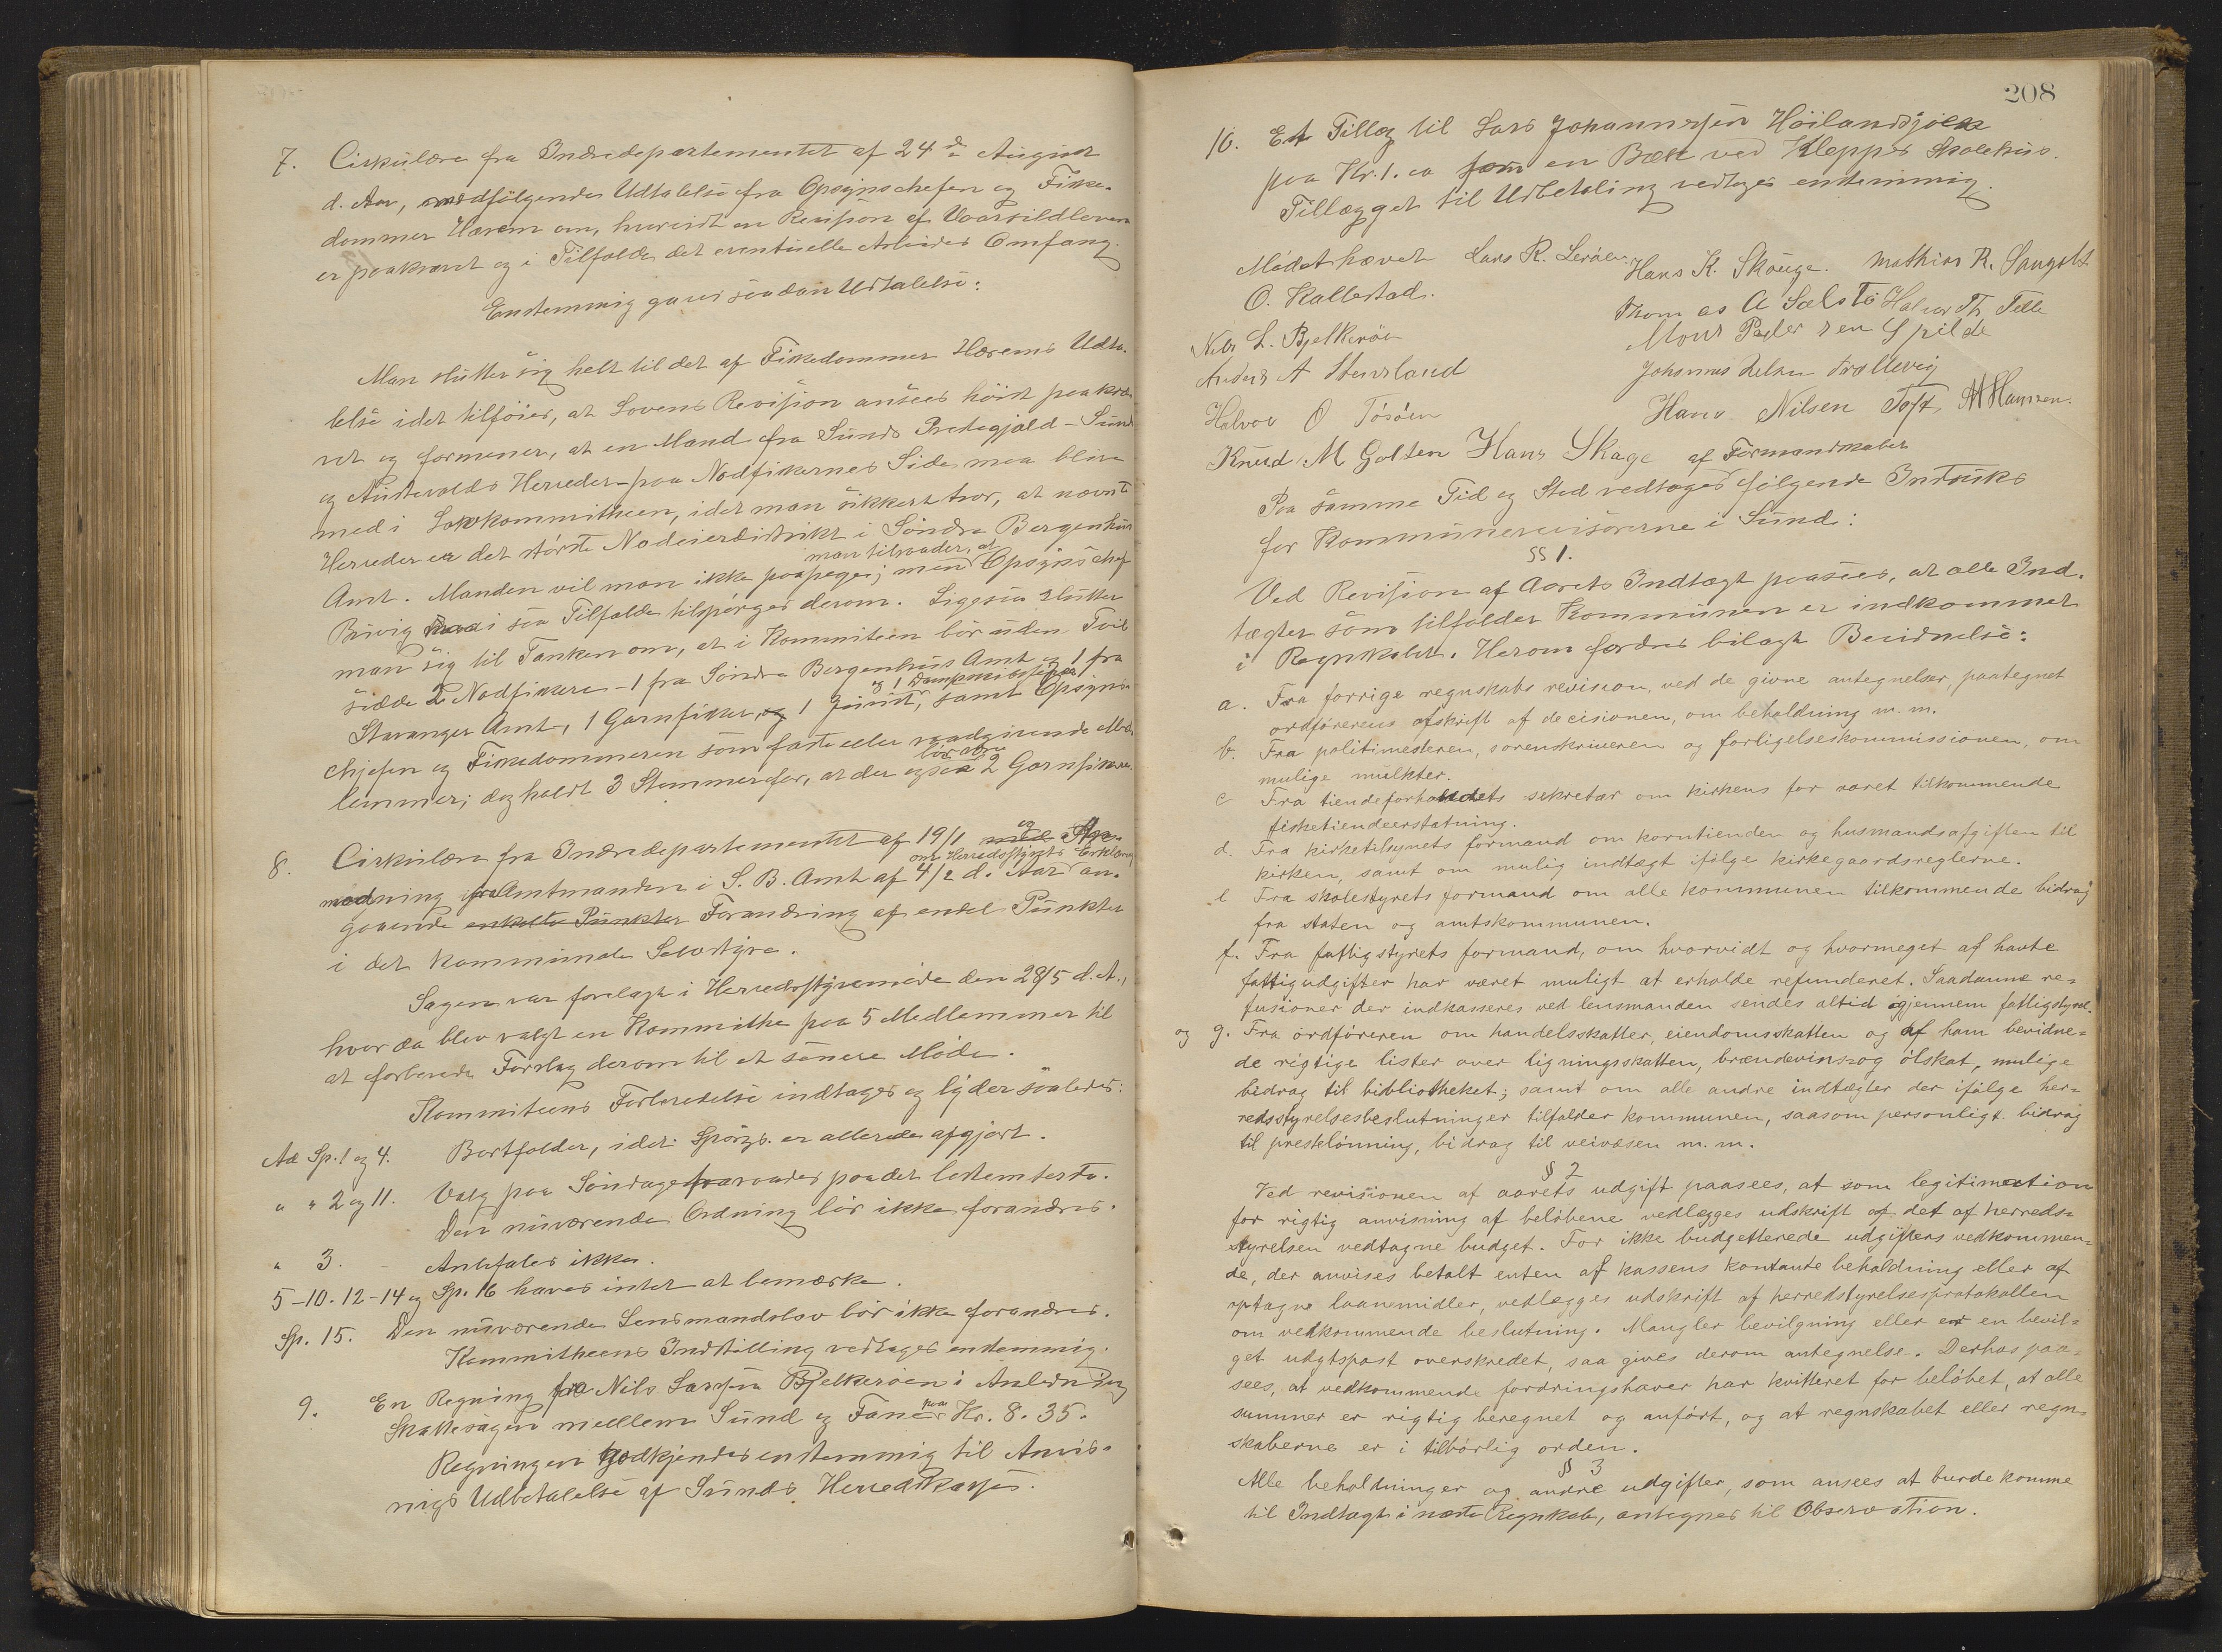 7. Cirkulære fra Indredepartementet af 24de August
d. Aar, medfölgende Udtalelse fra Opsynschefen og Fiske-
dommer Hærem om, hvorvidt en Revision af Vaarsildloven
er paakrævet og i Tilfælde det eventuelle Arbeides Omfang.
Enstemmig gaves saadan Udtalelse:
Man slutter sig helt til det af Fiskedommer Hærems Udta-
lelse idet tilföies, at Lovens Revision ansees höist paakræ-
vet og formener, at en Mand fra Sunds Prestegjæld - Sund
og Austevolds Herreder - paa Nodfiskernes Side maa blive
med i Lovkommitheen, idet man sikkert tror, at nævnte
Herreder er det störste Nodeierdistrikt i Söndre Bergenhus
Amt. Manden vil man ikke paapege; men man tilraader, at Opsynschef
Buvig i saa Tilfælde tilspörges derom. Ligesaa slutter
man sig til Tanken om, at i Kommiteen bör uden Tvil
sidde 2 Nodfiskere - 1 fra Söndre Bergenhus Amt og 1 fra
Stavanger Amt, 1 Garnfisker, og 1 Jurist, og 1 Dampskibsfisker samt Opsyns-
chjefen og Fiskedommeren som faste eller raadgivende Med-
lemmer; dog holdt 3 Stemmer for, at der ogsaa bör være 2 Garnfiskere.
8. Cirkulære fra Indredepartementet af 19/1 og An-
modning fra Amtmanden i S. B. Amt af 4/2 d. Aar om Herredsstyrets Erklæring an-
gaaende enkelte Punkter Forandring af endel Punkter
i det kommunale Selvstyre.
Sagen var forelagt i Herredsstyremöde den 28/5 d. A.,
hvor da blev valgt en Kommithe paa 5 Medlemmer til
at forberede Forslag derom til et senere Möde.
Kommiteens Forberedelse indtages og lyder saaledes:
Ad Sp. 1 og 4. Bortfalder, idet Spörgs. er allerede afgjort.
" " 2 og 11. Valg paa Söndage fraraades paa det bestemteste.
Den nuværende Ordning bör ikke forandres.
" 3. - Anbefales ikke.
5-10. 12-14 og Sp. 16 haves intet at bemærke.
Sp. 15. Den nuværende Lensmandslov bör ikke forandres.
Kommitheens Indstilling vedtages enstemmig.
9. En Regning fra Nils Larsen Bjelkeröen i Anledning
Skattesagen mellem Sund og Fane paa Kr. 8.35.
Regningen godkjendes enstemmig til Anvis-
nings Udbetalelse af Sunds Herredskasse.
208
10. Et Tillæg til Lars Johannessen Höilandsjöen
paa Kr. 1. ca for en Bæk ved Kleppes Skolehus.
Tillægget til Udbetaling vedtages enstemmig.
Mödet hævet Lars R. Leröen Hans K. Skauge. Mathias R. Sangolt
O. Kallestad. Thomas A Sælstö Halvor Th Telle
Nils L. Bjelkeröen Mons Pedersen Spilde
Anders A Stensland Johannes Nilsen Trollevig
Halvor O Tösöen Hans Nilsen Toft H Hansen
Knud M Golten Hans Skage af Formandskabet
Paa samme Tid og Sted vedtages fölgende Instruks
for Kommunerevisorerne i Sund:
§§ 1.
Ved Revision af Aarets Indtægt paasees, at alle Ind-
tægter som tilfalder Kommunen er indkommet
i Regnskabet. Herom fordres bilagt Bevidnelse:
a. Fra forrige regnskabs revision, ved de givne antegnelser, paategnet
ordförerens afskrift af decisionen, om beholdning m.m.
b. Fra politimesteren, sorenskriveren og forligelseskommissionen, om
mulige mulkter.
c Fra tiendeforholdets sekretær om kirkens for aaret tilkommende
fisketiendeerstatning.
d. Fra kirketilsynets formand om korntienden og husmandsafgiften til
kirken, samt om mulig indtægt ifölge kirkegaardsreglerne.
e Fra skolestyrets formand om alle kommunen tilkommende bidrag
fra staten og amtskommunen.
f. Fra fattigstyrets formand, om hvorvidt og hvormeget af havte
fattigudgifter har været muligt at erholde refunderet. Saadanne re-
fusioner der indkasseres ved lensmanden sendes altid igjennem fattigstyret.
og g. Fra ordföreren om handelsskatter, eiendomsskatten og af ham bevidne-
de rigtige lister over ligningsskatten, brændevins- og ölskat, mulige
bidrag til bibliotheket; samt om alle andre indtægter der ifölge her-
redsstyrelsesbeslutninger tilfalder kommunen, saasom personligt bidrag
til prestelönning, bidrag til veivæsen m.m.
§ 2
Ved revisionen af aarets udgift paasees, at som legitimation
for rigtig anvisning af belöbene vedlægges udskrift af det af herreds-
styrelsen vedtagne budget. For ikke budgetterede udgifters vedkommen-
de, der anvises betalt enten af kassens kontante beholdning eller af
optagne laanemidler, vedlægges udskrift af herredstyrelsesprotokollen
om vedkommende beslutning. Mangler bevilgning eller er en bevil-
get udgtspost overskredet, saa gives derom antegnelse. Derhos paa-
sees, at vedkommende fordringshaver har kvitteret for belöbet, at alle
summer er rigtig beregnet og anfört, og at regnskabet eller regn-
skaberne er i tilbörlig orden.
§ 3
Alle beholdninger og andre udgifter, som ansees at burde komme
til Indtægt i næste Regnskab, antegnes til Observation.